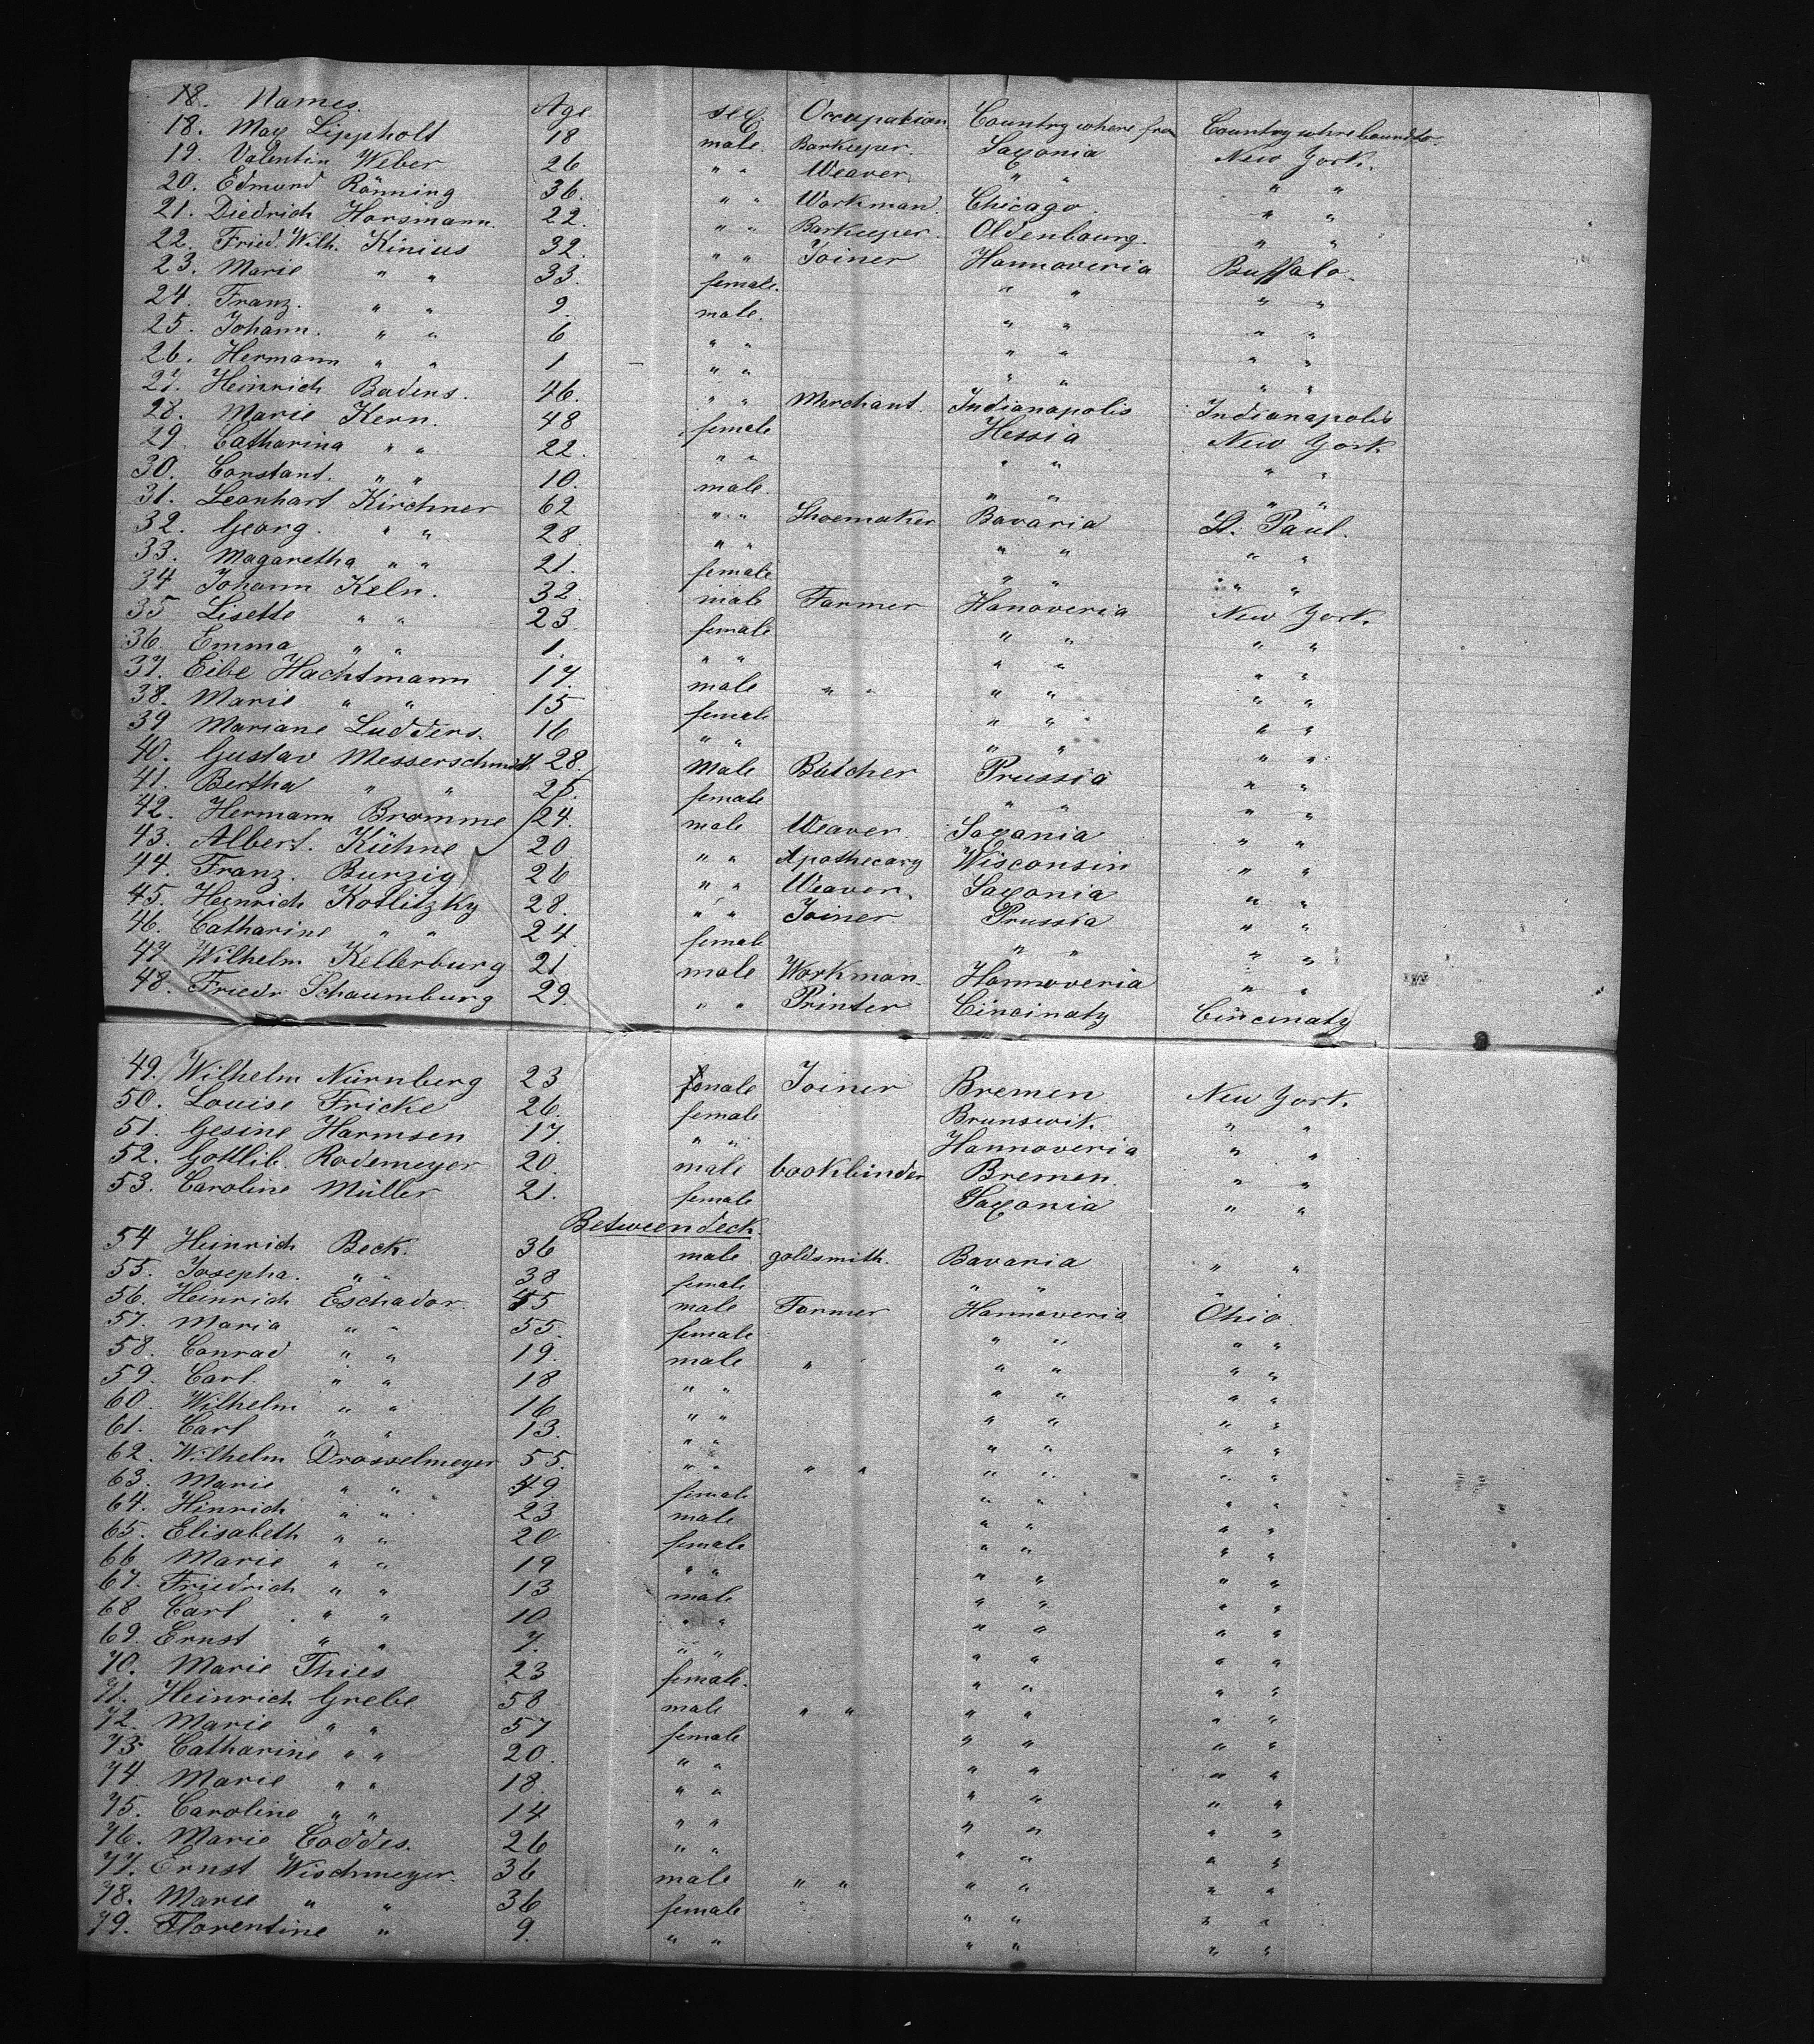 18. Names. Age sex. Occupation Country where from Country where bound to.
18. Max Lippholt 18 male. Barkeeper. Saxonia New York.
19. Valentin Weber 26 " " Weaver " " " "
20. Edmund Rönning 36. " " Workman. Chicago. " "
21. Diedrich Horsmann. 22. " " Barkeeper. Oldenbourg. " "
22. Fried. Wilh. Kinius 32. " " Joiner Hannoveria Buffalo.
23. Marie " " 33. female. " " " "
24. Franz. " " 9. male. " " " "
25. Johann. " " 6 " " " " " "
26. Hermann " " 1 " " " " " "
27. Heinrich Badens. 46. " " Merchant. Indianapolis Indianapolis
28. Marie Kern. 48 female Hessia New York.
29. Catharina " " 22. " " " " " "
30. Constant. " " 10. male. " " " "
31. Leonhart Kirchner 62 " " Shoemaker Bavaria St. Paul.
32. Georg. " " 28. " " " " " "
33. Magaretha " " 21. female " " " "
34 Johann Keln. 32. male Farmer Hanoveria New York.
35 Lisette " " 23. female " " " "
36. Emma " " 1. " " " " " "
37. Eibe Hachtmann 17. male " " " " " "
38. Marie " " 15 female " " " "
39 Mariane Ludders. 16 " " " " " "
40. Gustav Messerschmidt. 28. Male Butcher Prussia " "
41. Bertha " " 25. female " " " "
42. Hermann Bromme 24. male Weaver Saxonia " "
43. Albert. Kühne 20 " " Apothecary Wisconsin " "
44. Franz. Burzig 26 " " Weaver. Saxonia " "
45. Heinrich Kotlitzky 28. " " Joiner Prussia " "
46. Catharine " " 24. female " " " "
47 Wilhelm Kellerburg 21 male Workman. Hannoveria " "
48. Friedr Schaumburg 29. " " Printer Cincinaty Cincinaty
49. Wilhelm Nürnberg 23 male Joiner Bremen New York.
50. Louise Fricke 26. female Brunswik. " "
51. Gesine Harmsen 17. " " Hannoveria " "
52. Gottlib. Rodemeyer 20. male bookbinder Bremen. " "
53. Caroline Müller 21. female Saxonia " "
Between deck.
54 Heinrich Beck. 36 male goldsmith. Bavaria " "
55. Josepha. " " 38 female " " " "
56. Heinrich Eschador. 45 male Farmer Hannoveria Ohio.
57. Maria " " 55. female " " " "
58. Conrad " " 19. male " " " " "
59. Carl. " " 18 " " " " " "
60. Wilhelm " " 16 " " " " " "
61. Carl " " 13. " " " " " "
62. Wilhelm Drosselmeyer 55. " " " " " " " "
63. Marie " " 49. female " " " "
64. Hinrich " " 23 male " " " "
65. Elisabeth " " 20 female " " " "
66 Marie " " 19 " " " " " "
67. Friedrich " " 13 male " " " "
68 Carl " " 10 " " " " " "
69. Ernst " " 7. " " " " " "
70. Marie Thies 23 female. " " " "
71. Heinrich Grebe 58 male " " " " " "
72. Marie " " 57 female " " " "
73. Catharine " " 20. " " " " " "
74. Marie " " 18. " " " " " "
75. Caroline " " 14 " " " " " "
76. Marie Coddes. 26 " " " " " "
77. Ernst Wischmeyer. 36 male " " " " " "
78. Marie " " 36 female " " " "
79. Florentine " 9. " " " " " "